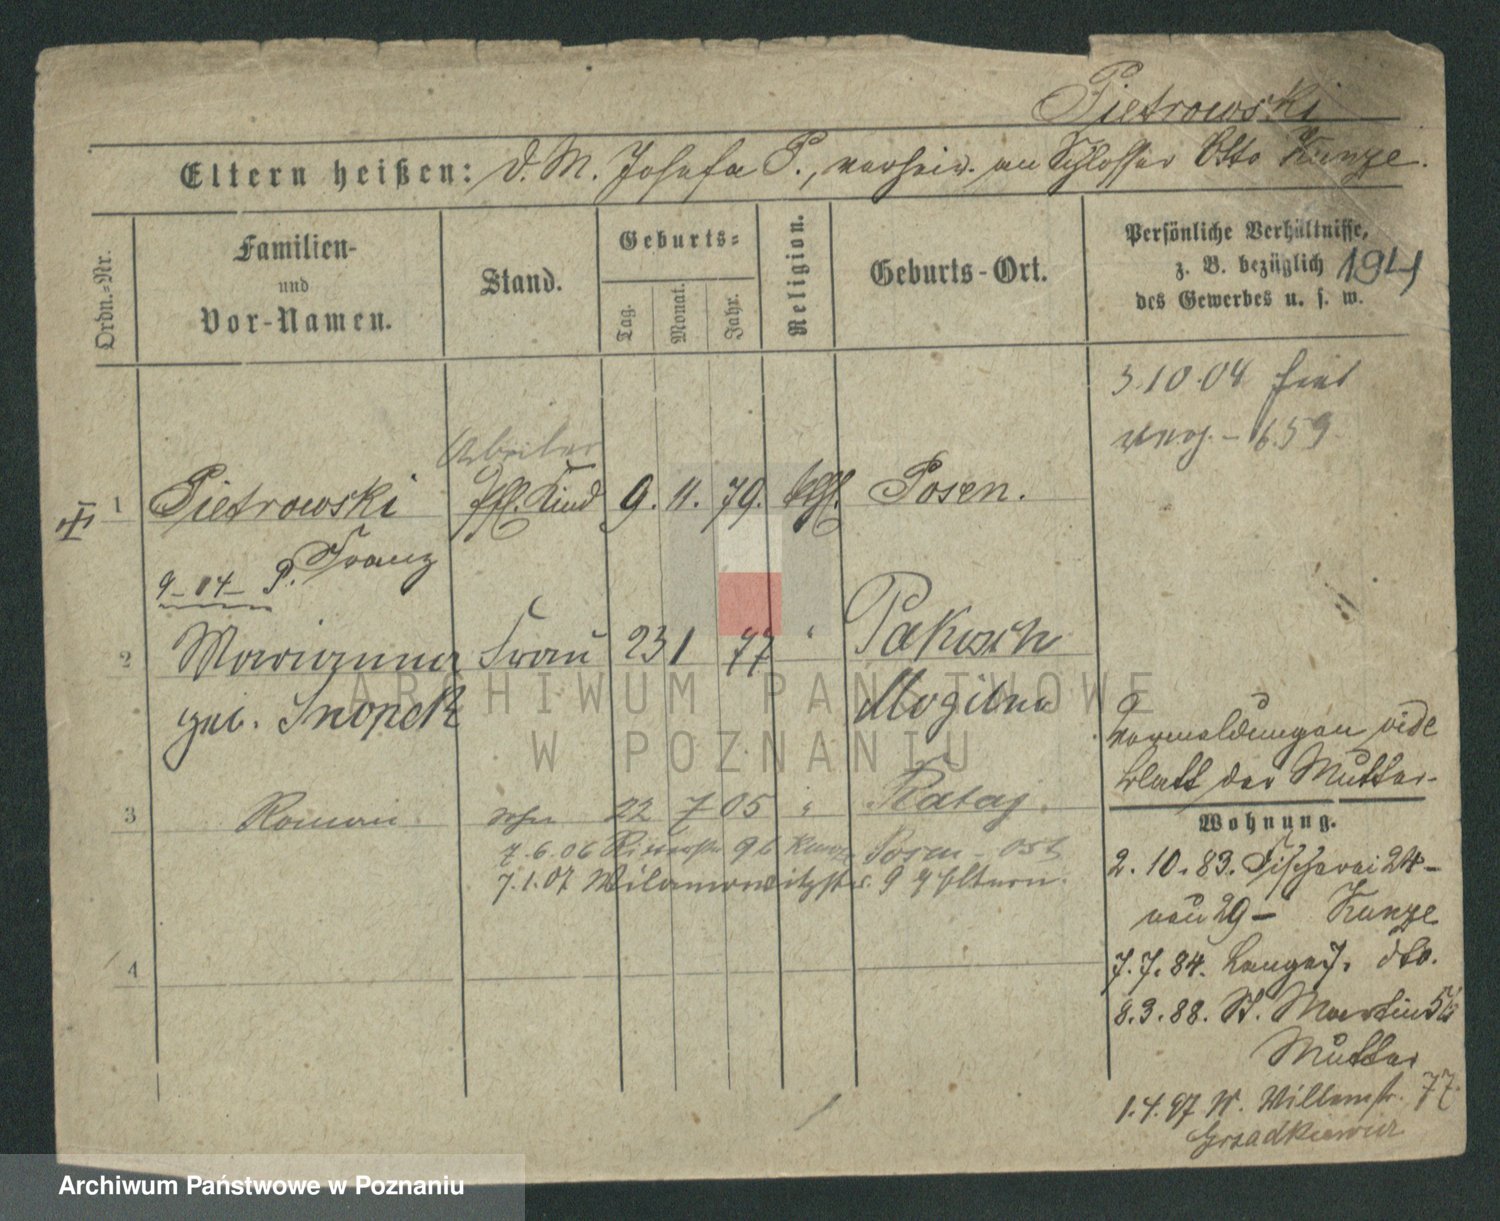 Pietrowski
Eltern heißen: d. M. Josefa P., verheir. an Schlosser Otto Kunze.
Ordn.-Nr.
Familien- und Vor-Namen.
Stand.
Geburts-
Tag.
Monat.
Jahr.
Religion.
Geburts-Ort.
Persönliche Verhältnisse, z. B. bezüglich des Gewerbes u. s. w.
194
3.10.04
6.59
Arbeiter
1 Pietrowski Pfl. Kind 9. 11. 79. kth. Posen.
Franz
9-04- P.
2 Marianna Frau 23 1 77 " Pakosch
geb. Snopek Mogilno
Vermeldungen vide
Blatt der Mutter.
3 Roman Sohn 22 7 05 " Rataj.
7.6.06 96 Posen
7.1.07 Wilamowitzstr. 9 Eltern.
Wohnung.
2.10.83. Fischerei 24-
neu 29 - Kunze
4
7.7.84. Lange 7. dto.
8.3.88. St. Martin 56
Mutter
1.4.97 N. Willemstr. 77.
Grzadkiewicz
ARCHIWUM PAŃSTWOWE
W POZNANIU
Archiwum Państwowe w Poznaniu